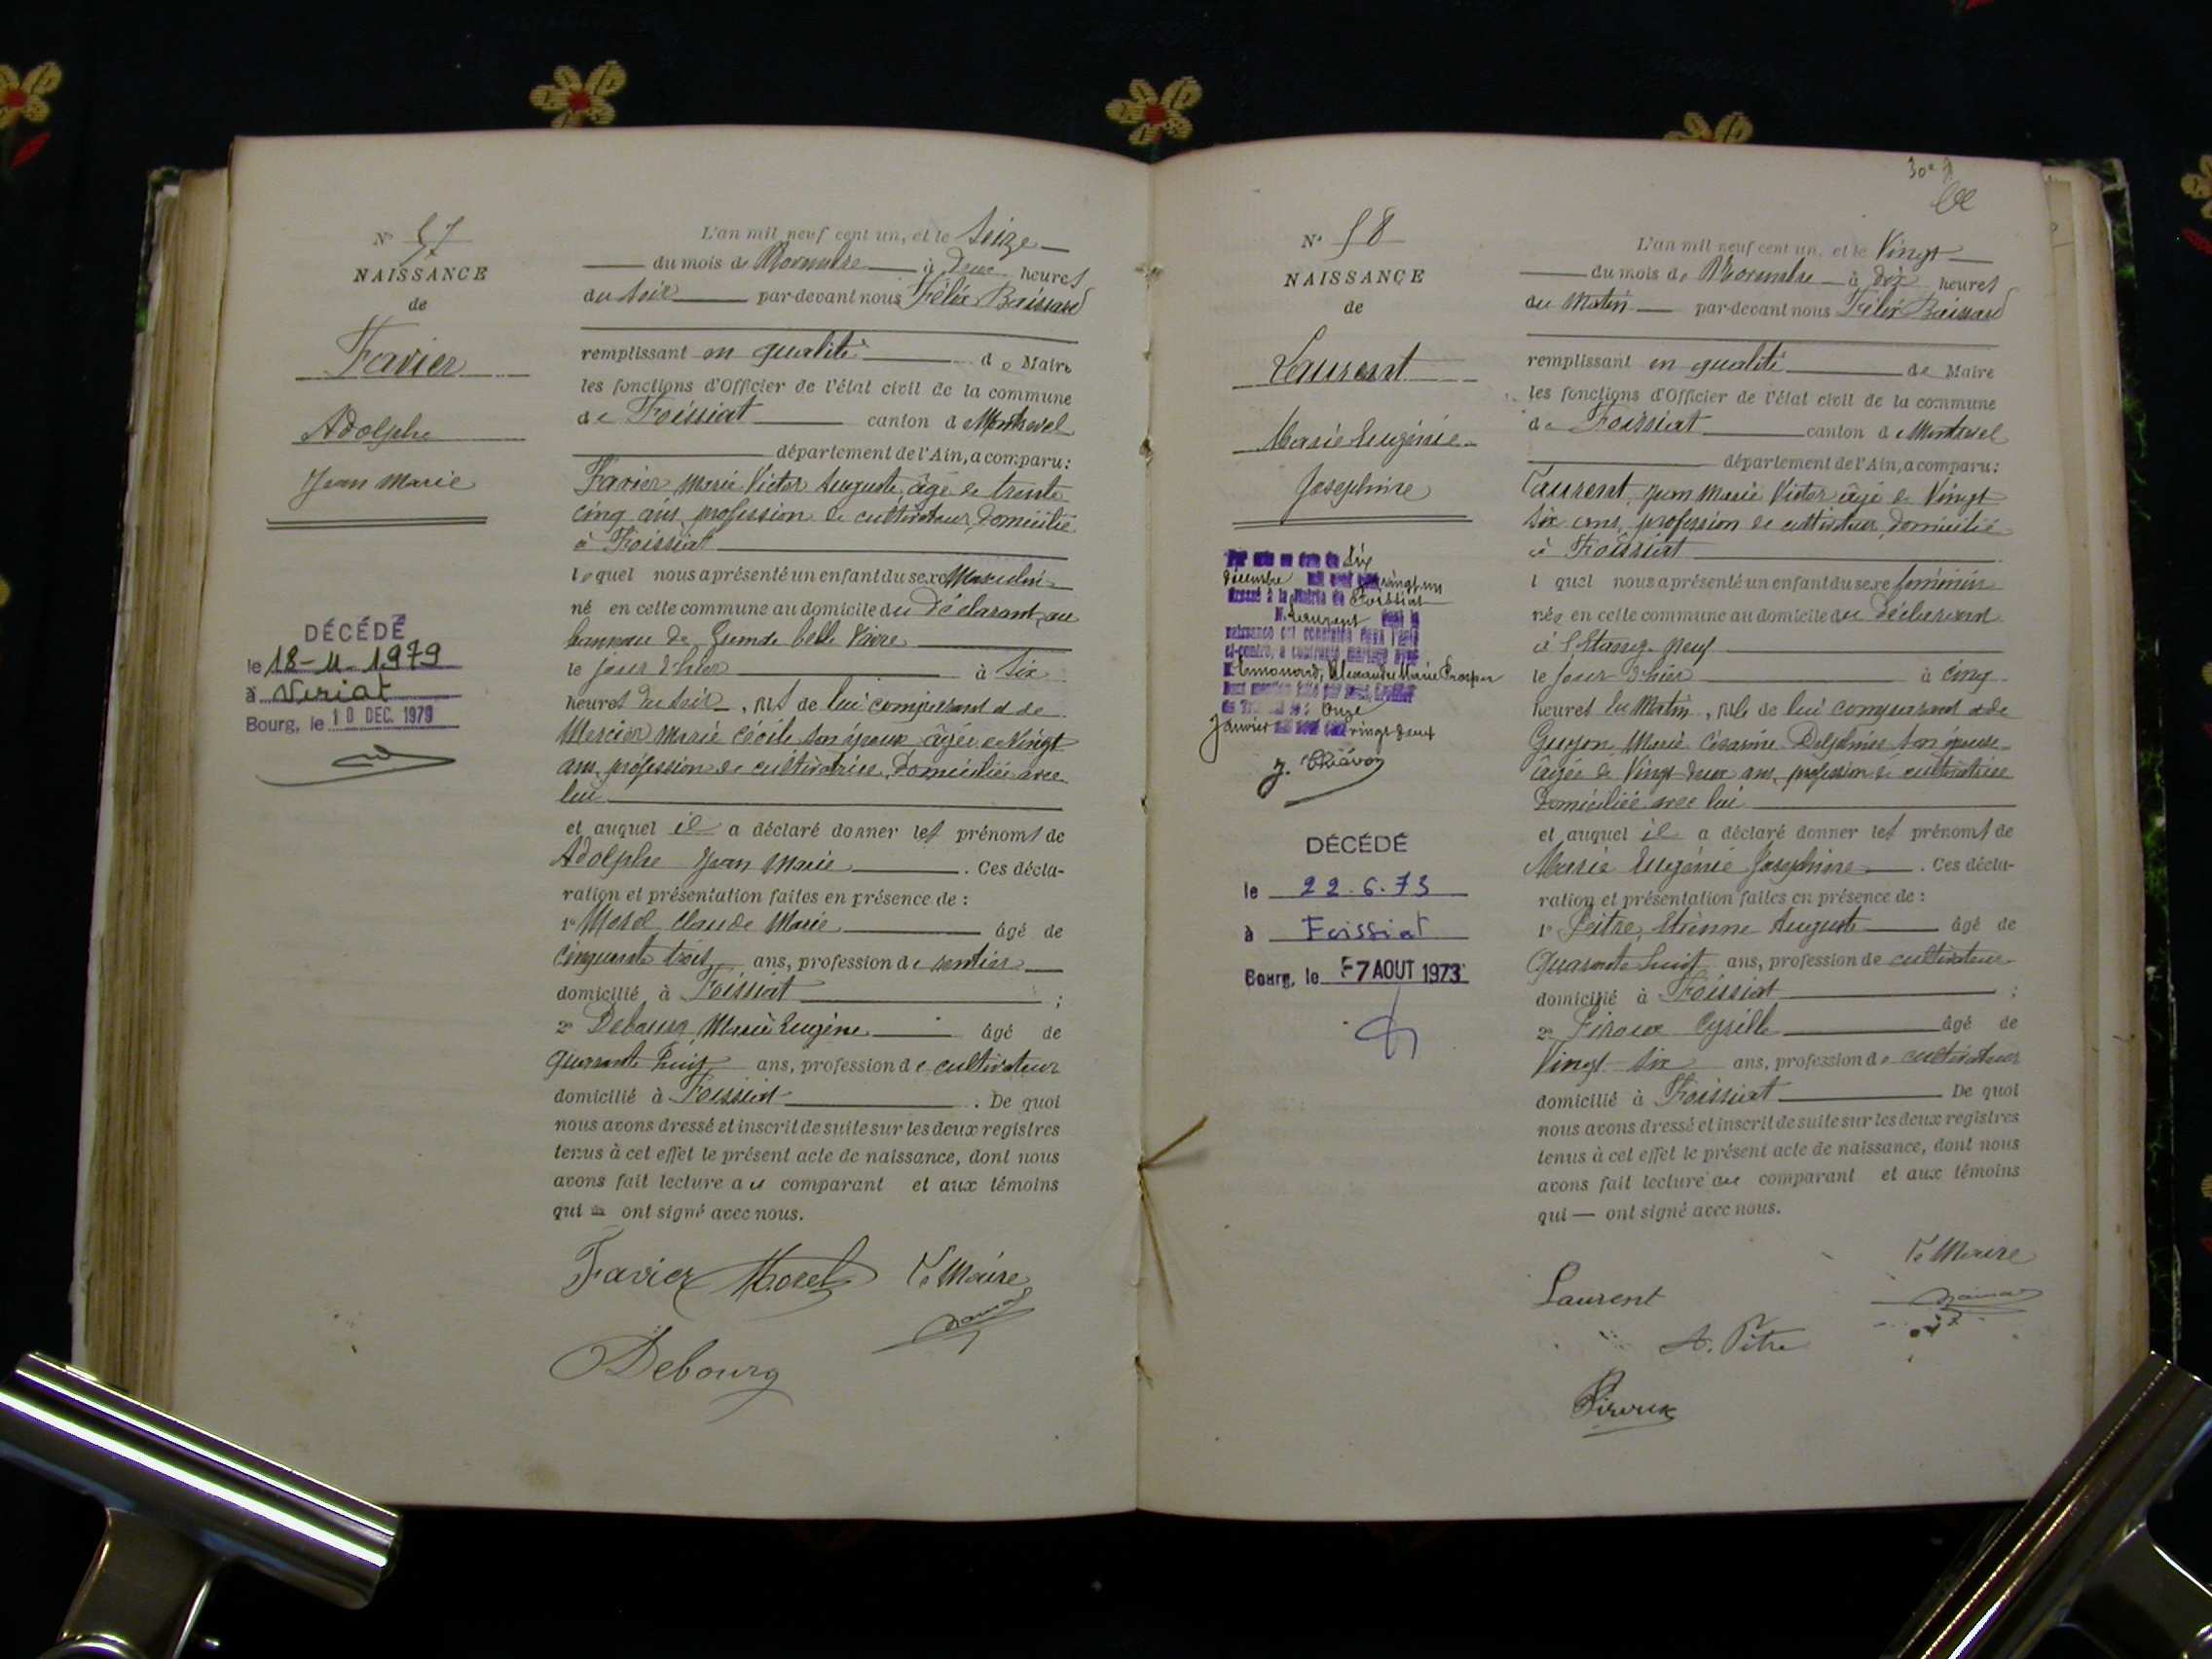 N° 57
NAISSANCE
de
Favier
Adolphe
Jean Marie
DÉCÉDÉ
le 18-11-1979
à Viriat
Bourg, le 10 DEC. 1979
L'an mil neuf cent un, et le Seize
du mois de Novembre à deux heures
du soir par-devant nous Félix
remplissant en qualité de Maire
les fonctions d'Officier de l'état civil de la commune
de Foissiat canton de Montrevel
département de l'Ain, a comparu:
Favier Marie Victor Auguste, âgé de trente
cinq ans, profession de cultivateur, domicilié
à Foissiat
lequel nous a présenté un enfant du sexe Masculin
né en cette commune au domicile du déclarant, au
hameau de
le jour d'hier à six
heures du soir, né de lui comparant et de
Mercier Marie Cécile son épouse, âgée de Vingt
ans, profession de cultivatrice, domiciliée avec
lui
et auquel il a déclaré donner les prénoms de
Adolphe Jean Marie. Ces décla-
ration et présentation faites en présence de :
1° Morel Claude Marie âgé de
cinquante trois ans, profession de rentier
domicilié à Foissiat ;
2° Debourg, Marie Eugène âgé de
quarante huit ans, profession de cultivateur
domicilié à Foissiat. De quoi
nous avons dressé et inscrit de suite sur les deux registres
tenus à cet effet le présent acte de naissance, dont nous
avons fait lecture au comparant et aux témoins
qui ont signé avec nous.
Favier Morel Le Maire
Debourg
30e
N° 58
NAISSANCE
de
Laurent
Marie Eugénie
Joséphine
Par acte en date du six
décembre mil neuf cent vingt un
dressé à la Mairie de Foissiat
M. Laurent dont la
naissance est constatée dans l'acte
ci-contre, a contracté mariage avec
M. Alexandre Marie Prosper
onze
Janvier mil neuf cent vingt deux
DÉCÉDÉ
le 22.6.73
à Foissiat
Bourg, le -7 AOUT 1973
L'an mil neuf cent un, et le Vingt
du mois de Novembre à dix heures
du Matin par-devant nous Félix
remplissant en qualité de Maire
les fonctions d'Officier de l'état civil de la commune
de Foissiat canton de Montrevel
département de l'Ain, a comparu:
Laurent, Jean Marie Victor âgé de Vingt
six ans, profession de cultivateur, domicilié
à Foissiat
lquel nous a présenté un enfant du sexe féminin
née en cette commune au domicile du déclarant
à l'Etang-Neuf
le jour d'hier à cinq
heures du Matin, née de lui comparant et de
Guyon, Marie Césarine Delphine son épouse
âgée de Vingt deux ans, profession de cultivatrice
domiciliée avec lui
et auquel il a déclaré donner les prénoms de
Marie Eugénie Joséphine. Ces décla-
ration et présentation faites en présence de :
1° Peitre, Etienne Auguste âgé de
Quarante huit ans, profession de cultivateur
domicilié à Foissiat ;
2° Piroux Cyrille âgé de
Vingt six ans, profession de cultivateur
domicilié à Foissiat De quoi
nous avons dressé et inscrit de suite sur les deux registres
tenus à cet effet le présent acte de naissance, dont nous
avons fait lecture au comparant et aux témoins
qui — ont signé avec nous.
Le Maire
Laurent
A. Pitre
Piroux